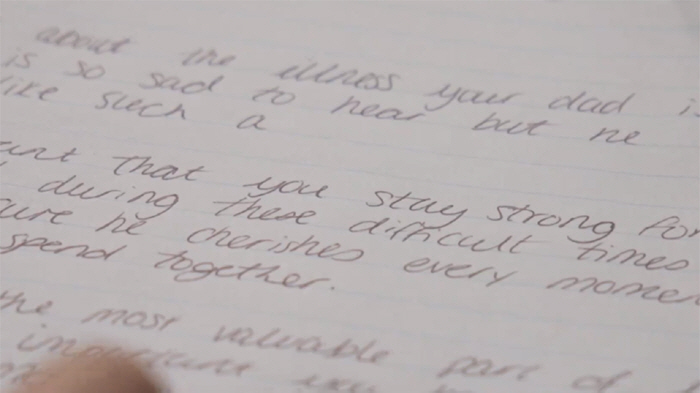 about the illness your dad is
is so sad to hear but he
like such a
that you stay strong for
during these difficult times
he cherishes every
spend together.
the most valuable part of